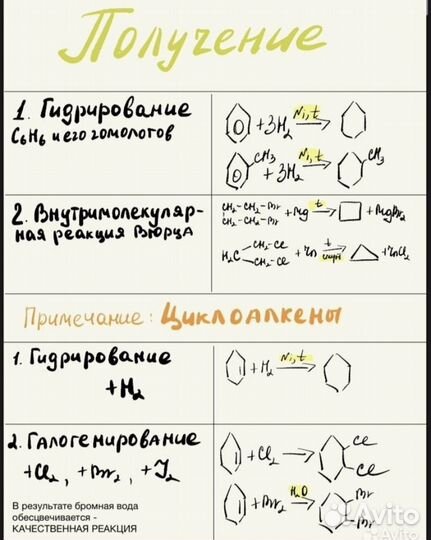 Получение
1. Гидрирование
C6H6 и его гомологов
+3H2 Ni, t
CH3 +3H2 Ni, t CH3
2. Внутримолекуляр-
ная реакция Вюрца
CH2-CH2-Br
CH2-CH2-Br +Mg t +MgBr2
H2C CH2-Cl
CH2-Cl +Zn t спирт +ZnCl2
Примечание: Циклоалкены
1. Гидрирование
+H2
+H2 Ni, t
2. Галогенирование
+Cl2, +Br2, +I2
+Cl2 Cl
Cl
+Br2 H2O Br
Br
В результате бромная вода
обесцвечивается -
КАЧЕСТВЕННАЯ РЕАКЦИЯ
Avito
Avito